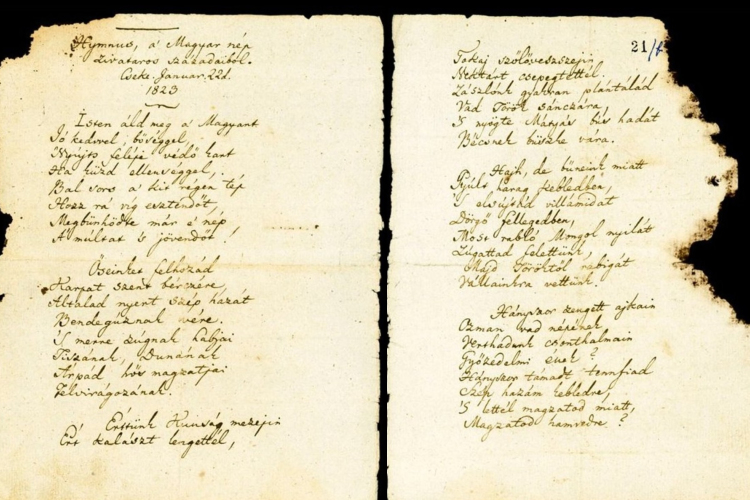 Hymnus, a' Magyar nép
zivataros századaiból.
Cseke. Januar. 22d.
1823
Isten áldd meg a' Magyart
Jó kedvvel, bőséggel,
Nyújts feléje védő kart
Ha küzd ellenséggel,
Bal sors a' kit régen tép
Hozz rá víg esztendőt,
Megbünhödte már e' nép
A' múltat 's jövendőt!
Őseinket felhozád
Kárpát szent bérczére,
Általad nyert szép hazát
Bendegúznak vére.
'S merre zúgnak habjai
Tiszának, Dunának
Árpád hős magzatjai
Felvirágozának.
Értünk Kunság mezein
Ért kalászt lengettél,
21/
Tokaj szőlővesszein
Nektárt csepegtettél.
Zászlónk gyakran plántálád
Vad Török sánczára,
'S nyögte Mátyás bús hadát
Bécsnek büszke vára.
Hajh, de bűneink miatt
Gyúlt harag kebledben,
'S elsújtád villámidat
Dörgő fellegedben,
Most rabló Mongol nyilát
Zúgattad felettünk,
Majd Töröktől rabigát
Vállainkra vettünk.
Hányszor zengett ajkain
Ozman vad népének
Vert hadunk csonthalmain
Győzedelmi ének?
Hányszor támadt tennfiad
Szép hazám kebledre,
'S lettél magzatod miatt,
Magzatod hamvedre?